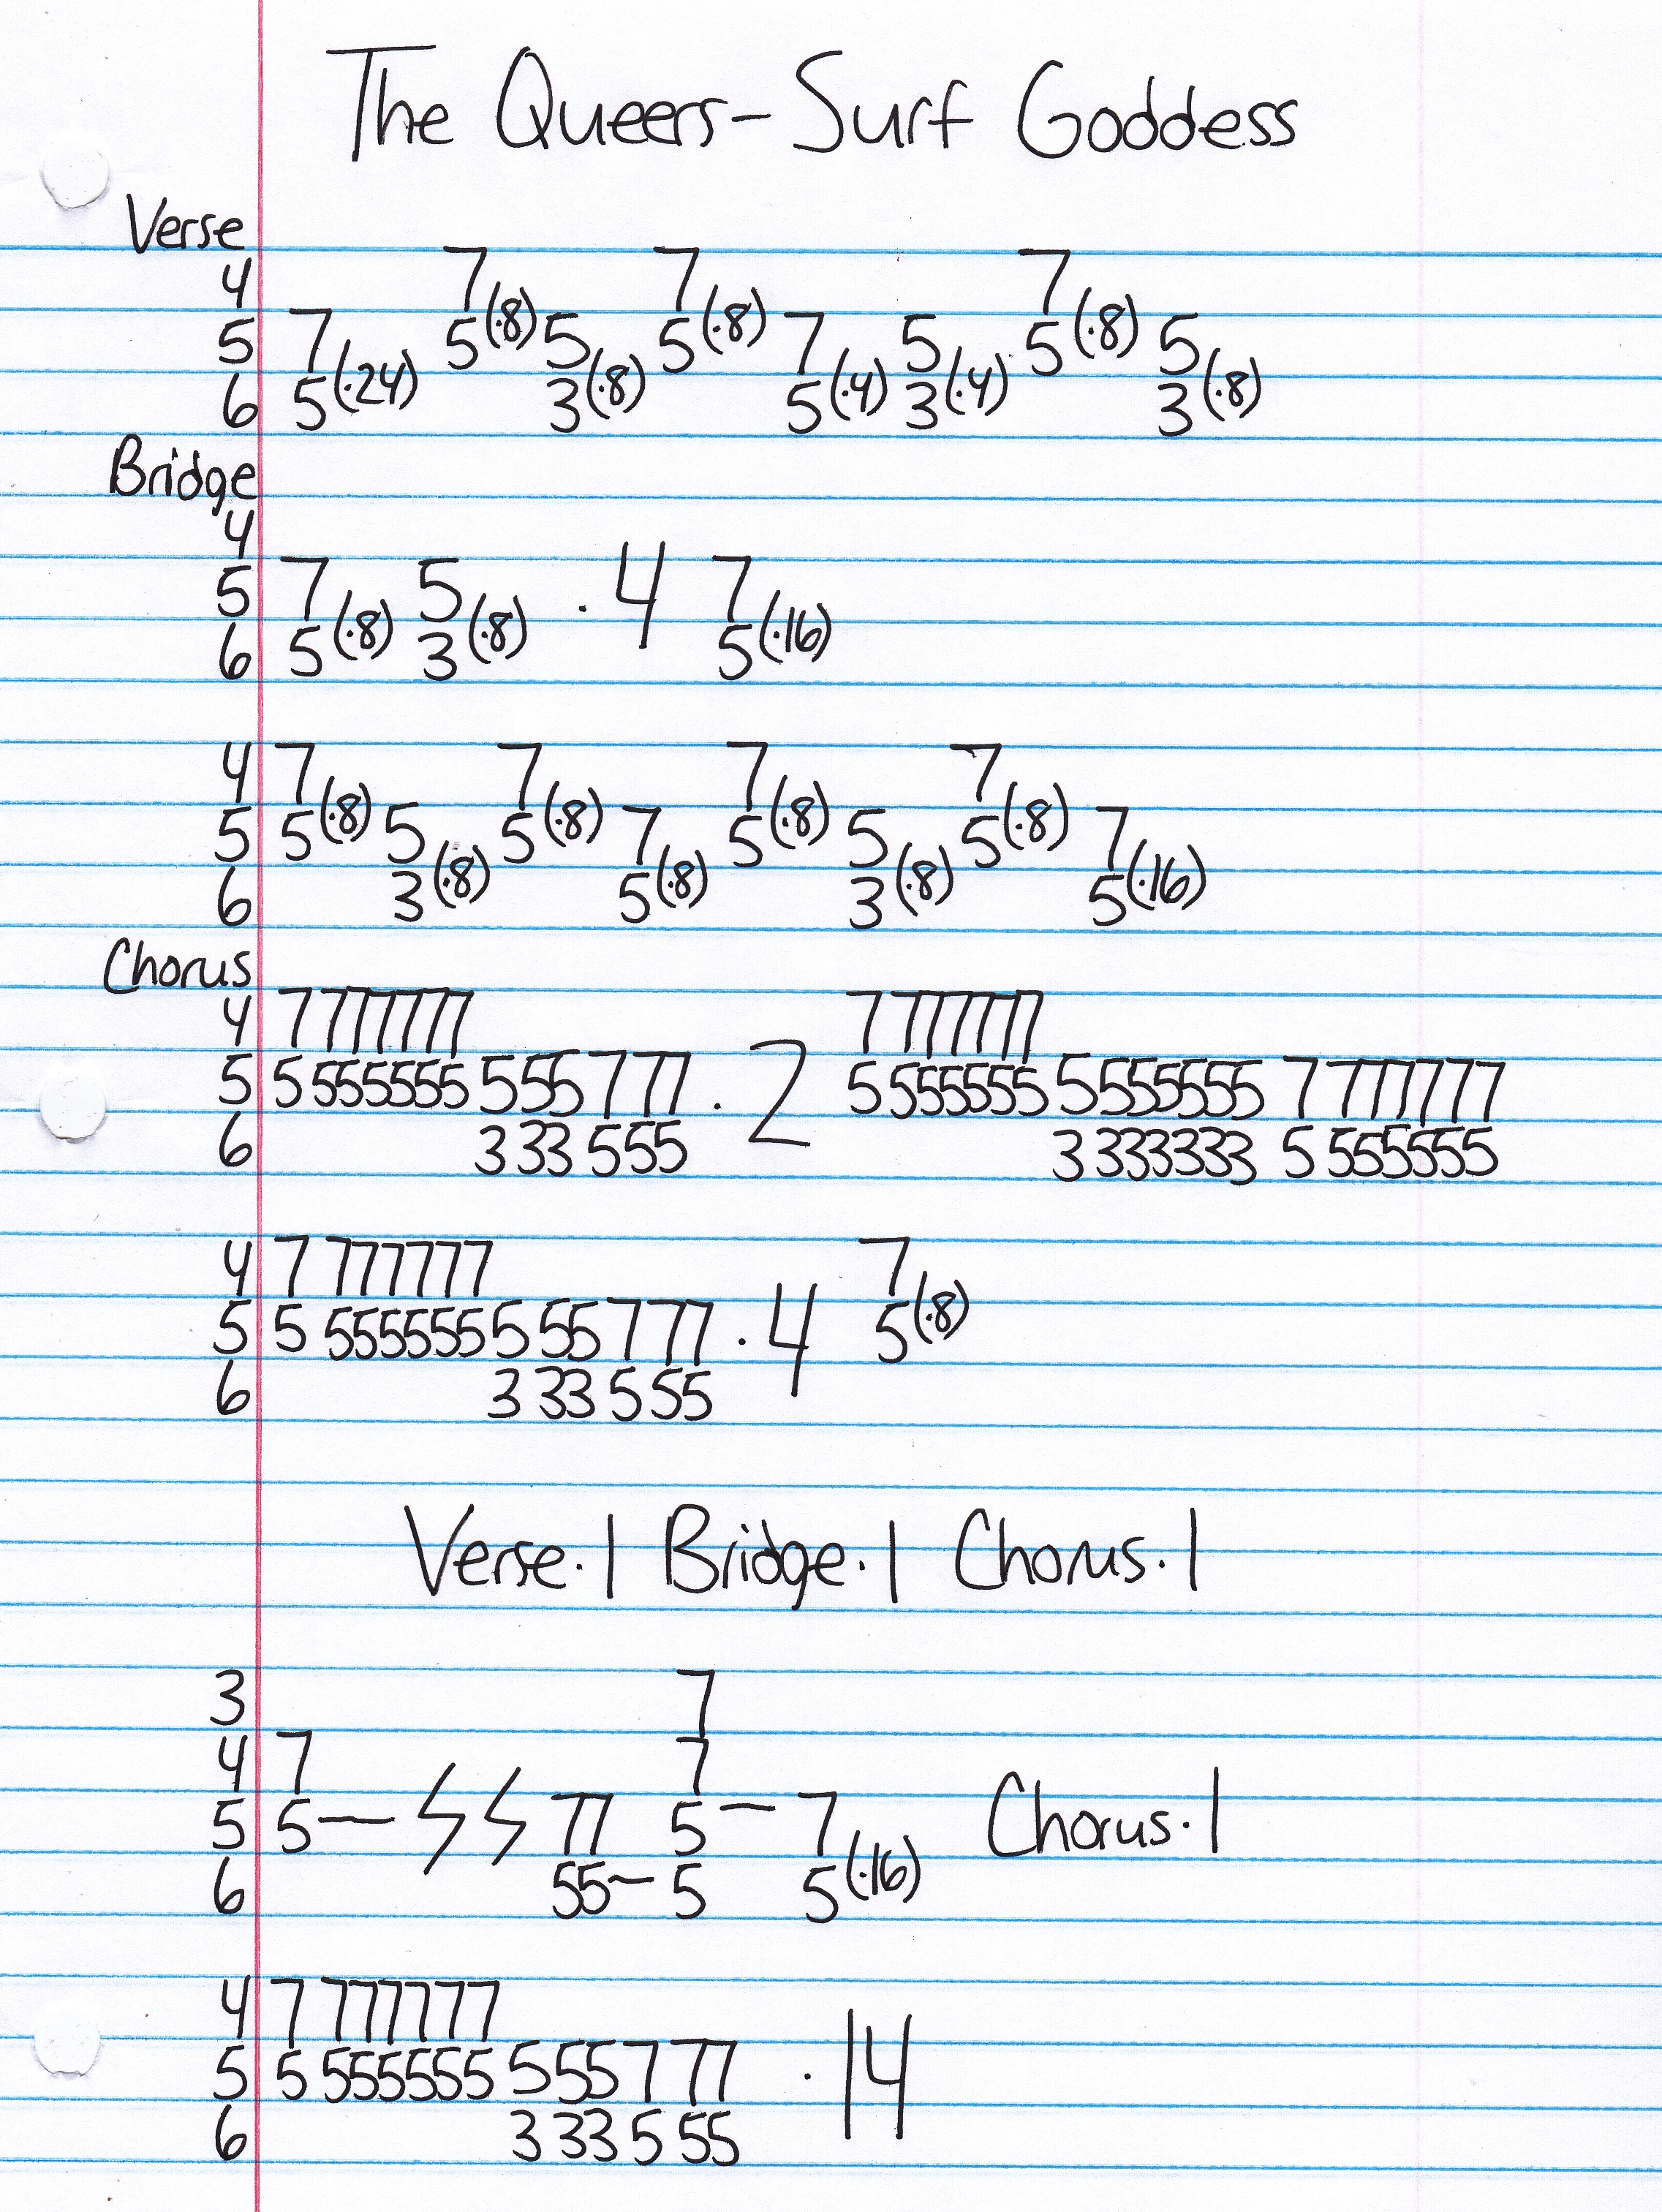 The Queers - Surf Goddess
Verse
4 7 7 7
5 7 5(·8) 5 5(·8) 7 5 5(·8) 5
6 5(·24) 3(·8) 5(·4) 3(·4) 3(·8)
Bridge
4
5 7 5 · 4 7
6 5(·8) 3(·8) 5(·16)
4 7 7 7 7
5 5(·8) 5 5(·8) 7 5(·8) 5 5(·8) 7
6 3(·8) 5(·8) 3(·8) 5(·16)
Chorus
4 7 777777 7 777777
5 5 555555 555 777 · 2 5 555555 5555555 7 777777
6 333 555 3 333333 5 555555
4 7 777777 7
5 5 555555 5 55 777 · 4 5(·8)
6 3 33 555
Verse·1 Bridge·1 Chorus·1
3 7
4 7 7
5 5— 77 5 — 7 Chorus·1
6 55— 5 5(·16)
4 7 777777
5 5 555555 555 777 · 14
6 3 33 5 55